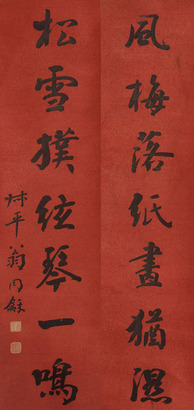 風梅落紙畫猶濕
松雪撲弦琴一鳴
叔平翁同龢